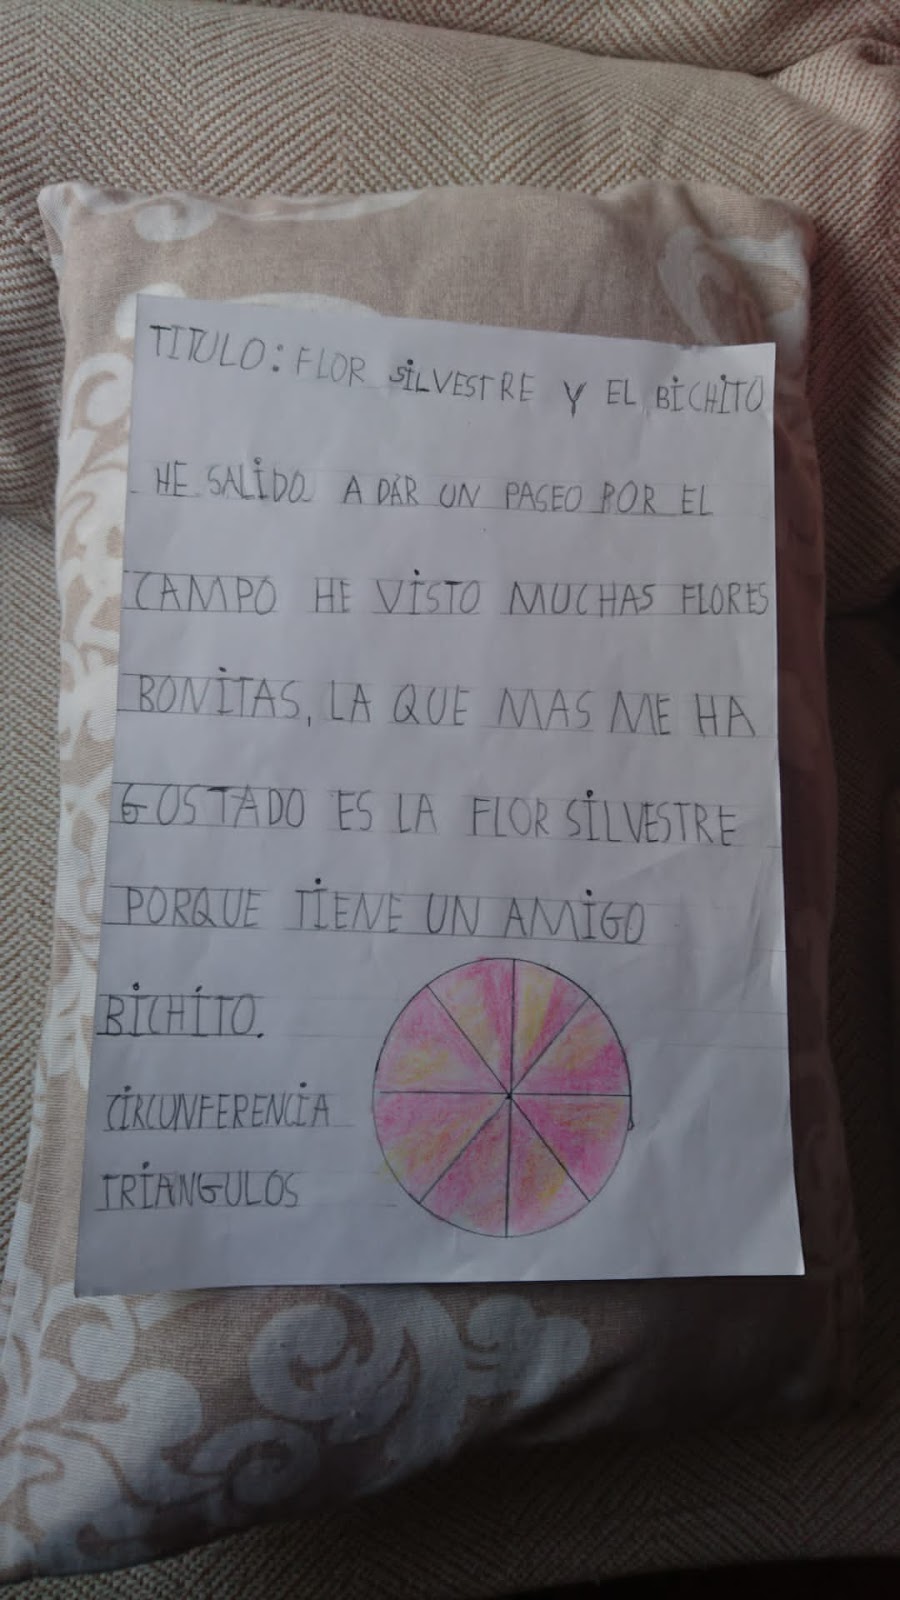 TITULO: FLOR SiLVESTRE Y EL BiCHiTO
HE SALiDO A DAR UN PASEO POR EL
CAMPO HE ViSTO MUCHAS FLORES
BONiTAS, LA QUE MAS ME HA
GUSTADO ES LA FLOR SiLVESTRE
PORQUE TiENE UN AMiGO
BiCHiTO.
CiRCUNFERENCiA
TRiANGULOS